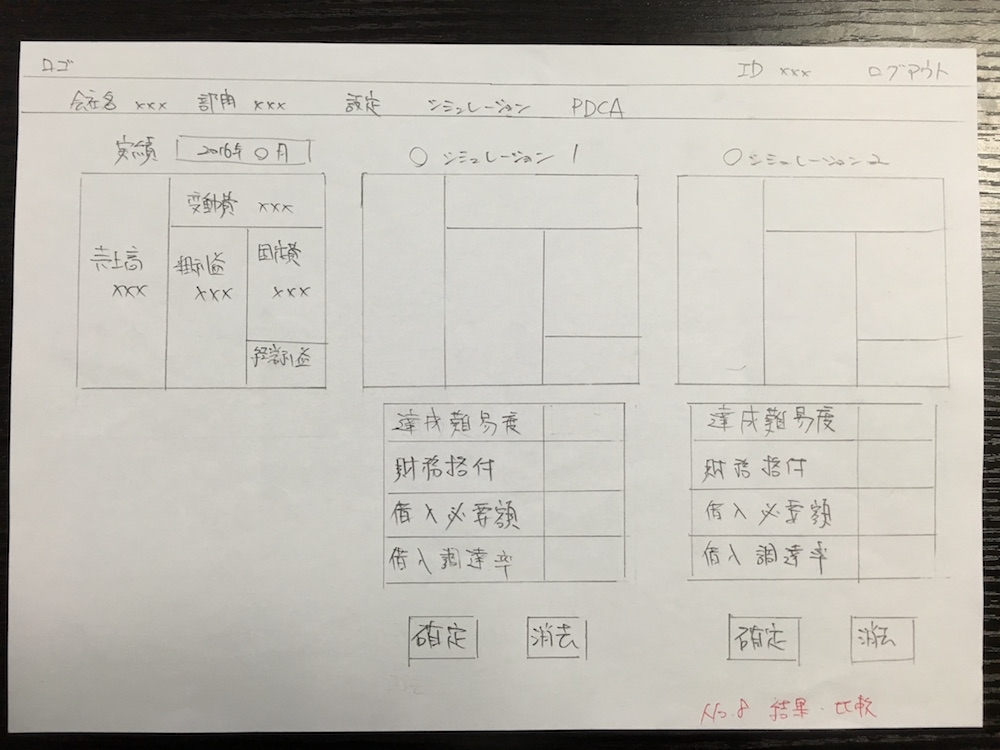 ロゴ ID xxx ログアウト
会社名 xxx 部門 xxx 設定 シミュレーション PDCA
実績 2016年〇月
変動費 xxx
売上高
xxx
粗利益
xxx
固定費
xxx
経常利益
〇シミュレーション 1
達成難易度
財務格付
借入必要額
借入調達率
確定 消去
〇シミュレーション2
達成難易度
財務格付
借入必要額
借入調達率
確定 消去
No.8 結果・比較